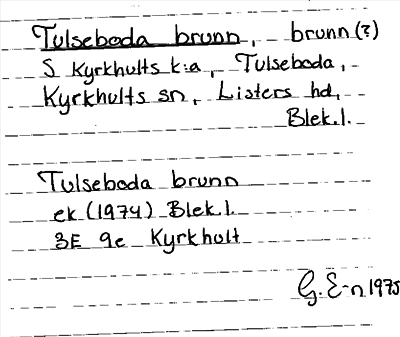 Tulseboda brunn, brunn(?)
S Kyrkhults k:a, Tulseboda,
Kyrkhults sn, Listers hd,
Blek.l.
Tulseboda brunn
ek (1974) Blek.l.
3E 9e Kyrkhult
G. E-n 1975